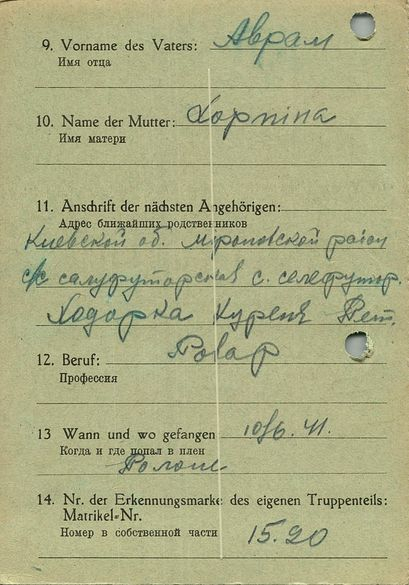 9. Vorname des Vaters: Аврам
Имя отца
10. Name der Mutter: Хорпіна
Имя матери
11. Anschrift der nächsten Angehörigen:
Адрес ближайших родственников
Киевской об. район
с/с с.
Ходорка
12. Beruf: Повар
Профессия
13 Wann und wo gefangen 10/6. 41.
Когда и где попал в плен
14. Nr. der Erkennungsmarke des eigenen Truppenteils:
Matrikel-Nr.
Номер в собственной части 15.20